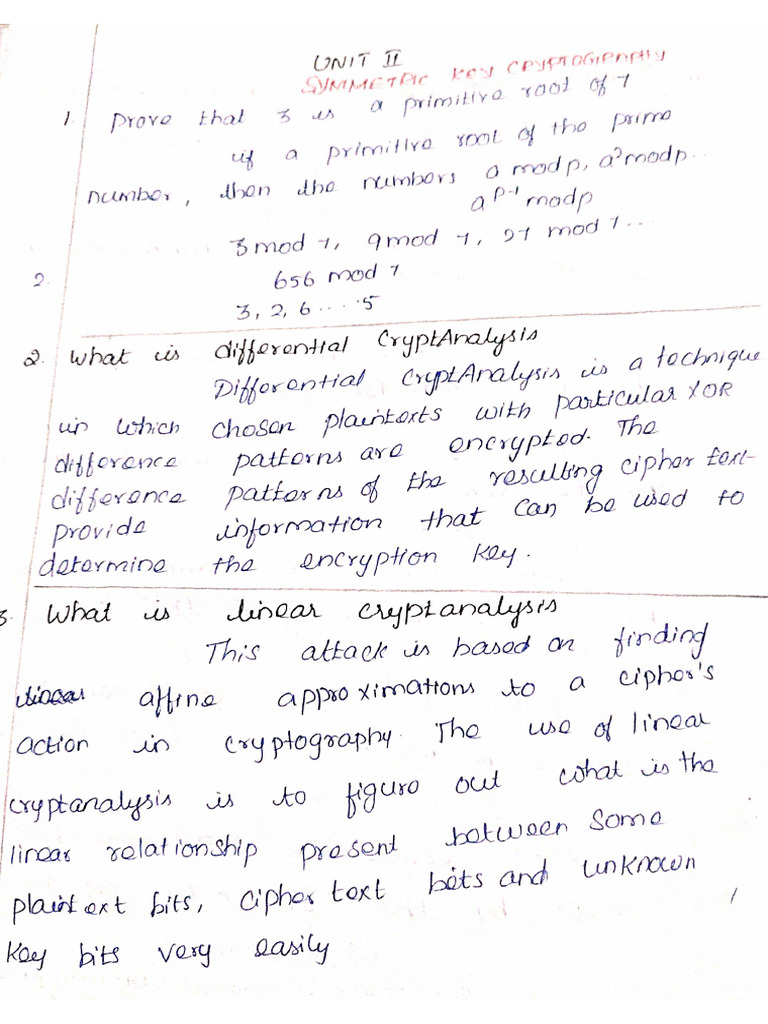 UNIT II
SYMMETRIC KEY CRYPTOGRAPHY
1. Prove that 3 is a primitive root of 7
if a primitive root of the prime
number, then the numbers a mod p, a² mod p...
a^p-1 mod p
3 mod 7, 9 mod 7, 27 mod 7...
2.
656 mod 7
3, 2, 6 .... 5
2. What is differential CryptAnalysis
Differential CryptAnalysis is a technique
in which chosen plaintexts with particular XOR
difference patterns are encrypted. The
difference patterns of the resulting cipher text
provide information that can be used to
determine the encryption key.
3. What is linear cryptanalysis
This attack is based on finding
affine approximations to a cipher's
action in cryptography. The use of linear
cryptanalysis is to figure out what is the
linear relationship present between some
plaintext bits, cipher text bits and unknown
key bits very easily